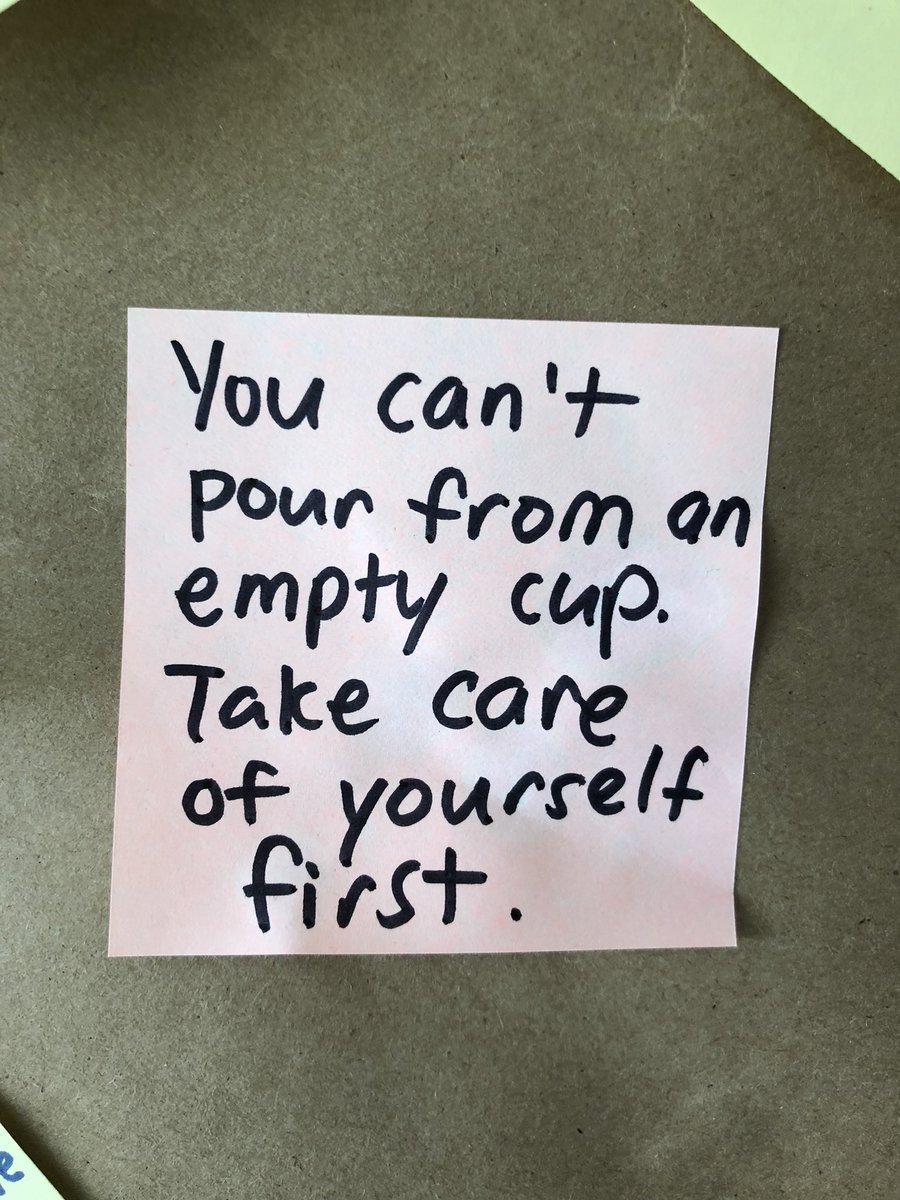 You can't
pour from an
empty cup.
Take care
of yourself
first.